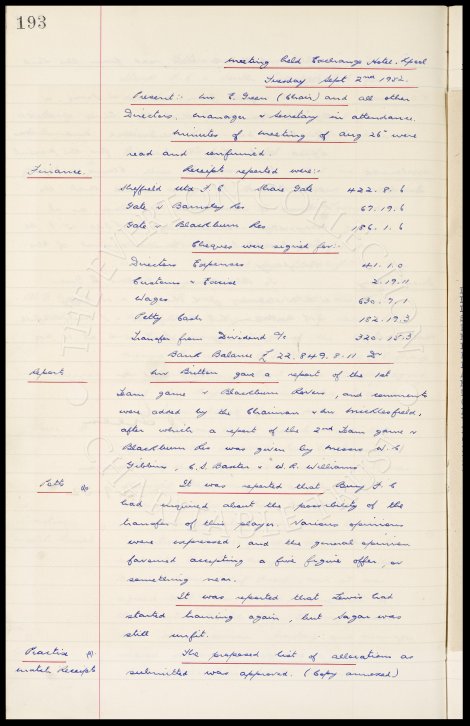 193
Meeting held Exchange Hotel. Lpool
Tuesday Sept 2nd 1952.
Present:- Mr C. Green (Chair) and all other
Directors. Manager & Secretary in attendance.
Minutes of meeting of Aug 26th were
read and confirmed.
Finance. Receipts reported were:-
Sheffield Utd F.C Share Gate 422.8.6
Gate v Barnsley Res 67.19.6
Gate v Blackburn Res 186.1.6
Cheques were signed for:-
Directors Expenses 41.1.0
Customs & Excise 2.19.11
Wages 630.7.1
Petty Cash 182.19.3
Transfer from Dividend a/c 320.18.3
Bank Balance £22,849.8.11 Dr
Report. Mr Britton gave a report of the 1st
Team game v Blackburn Rovers, and comments
were added by the Chairman & Mr Micklesfield,
after which a report of the 2nd Team game v
Blackburn Res was given by Messrs W.C.
Gibbins, C.S. Baxter & W.R. Williams.
Potts It was reported that Bury F.C
had inquired about the possibility of the
transfer of this player. Various opinions
were expressed, and the general opinion
favoured accepting a five figure offer, or
something near.
It was reported that Lewis had
started training again, but Sagar was
still unfit.
Practice The proposed list of allocations as
match Receipts submitted was approved. (Copy annexed)
THE EVERTON COLLECTION
CHARITABLE TRUST